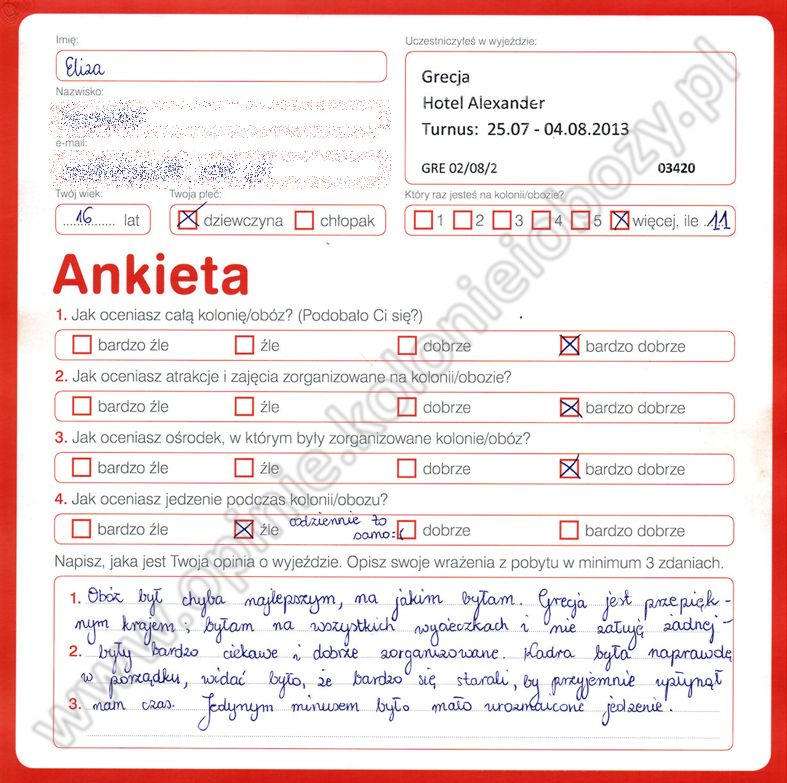 Imię:
Eliza
Nazwisko:
e-mail:
Twój wiek:
16 lat
Twoja płeć:
dziewczyna chłopak
Uczestniczyłeś w wyjeździe:
Grecja
Hotel Alexander
Turnus: 25.07 - 04.08.2013
GRE 02/08/2 03420
Który raz jesteś na kolonii/obozie?
1 2 3 4 5 więcej, ile 11
Ankieta
1. Jak oceniasz całą kolonię/obóz? (Podobało Ci się?)
bardzo źle źle dobrze bardzo dobrze
2. Jak oceniasz atrakcje i zajęcia zorganizowane na kolonii/obozie?
bardzo źle źle dobrze bardzo dobrze
3. Jak oceniasz ośrodek, w którym były zorganizowane kolonie/obóz?
bardzo źle źle dobrze bardzo dobrze
4. Jak oceniasz jedzenie podczas kolonii/obozu?
bardzo źle źle codziennie to samo :( dobrze bardzo dobrze
Napisz, jaka jest Twoja opinia o wyjeździe. Opisz swoje wrażenia z pobytu w minimum 3 zdaniach.
1. Obóz był chyba najlepszym, na jakim byłam. Grecja jest przepięk-
nym krajem; byłam na wszystkich wycieczkach i nie żałuję żadnej -
2. były bardzo ciekawe i dobrze zorganizowane. Kadra była naprawdę
w porządku, widać było, że bardzo się starali, by przyjemnie upłynął
3. nam czas. Jedynym minusem było mało urozmaicone jedzenie.
www.opinie.kolonieiobozy.pl